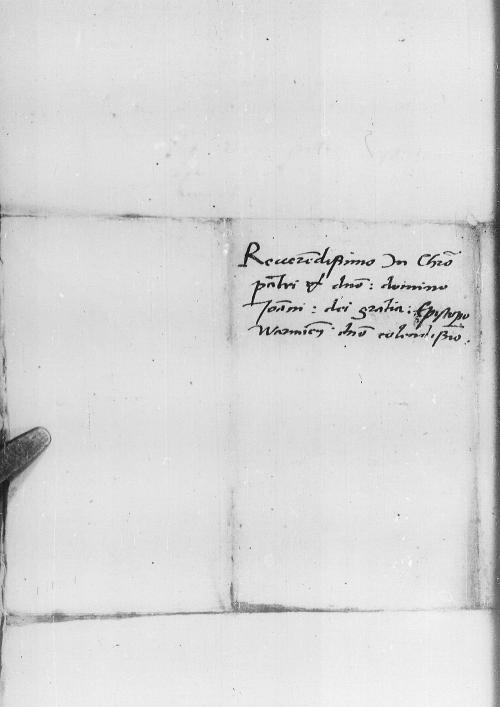 Reuerēdissimo In Chrō
patri et dnō: domino
Joāni: dei gratia: Episcopo
Warmień dnō colendissīo.